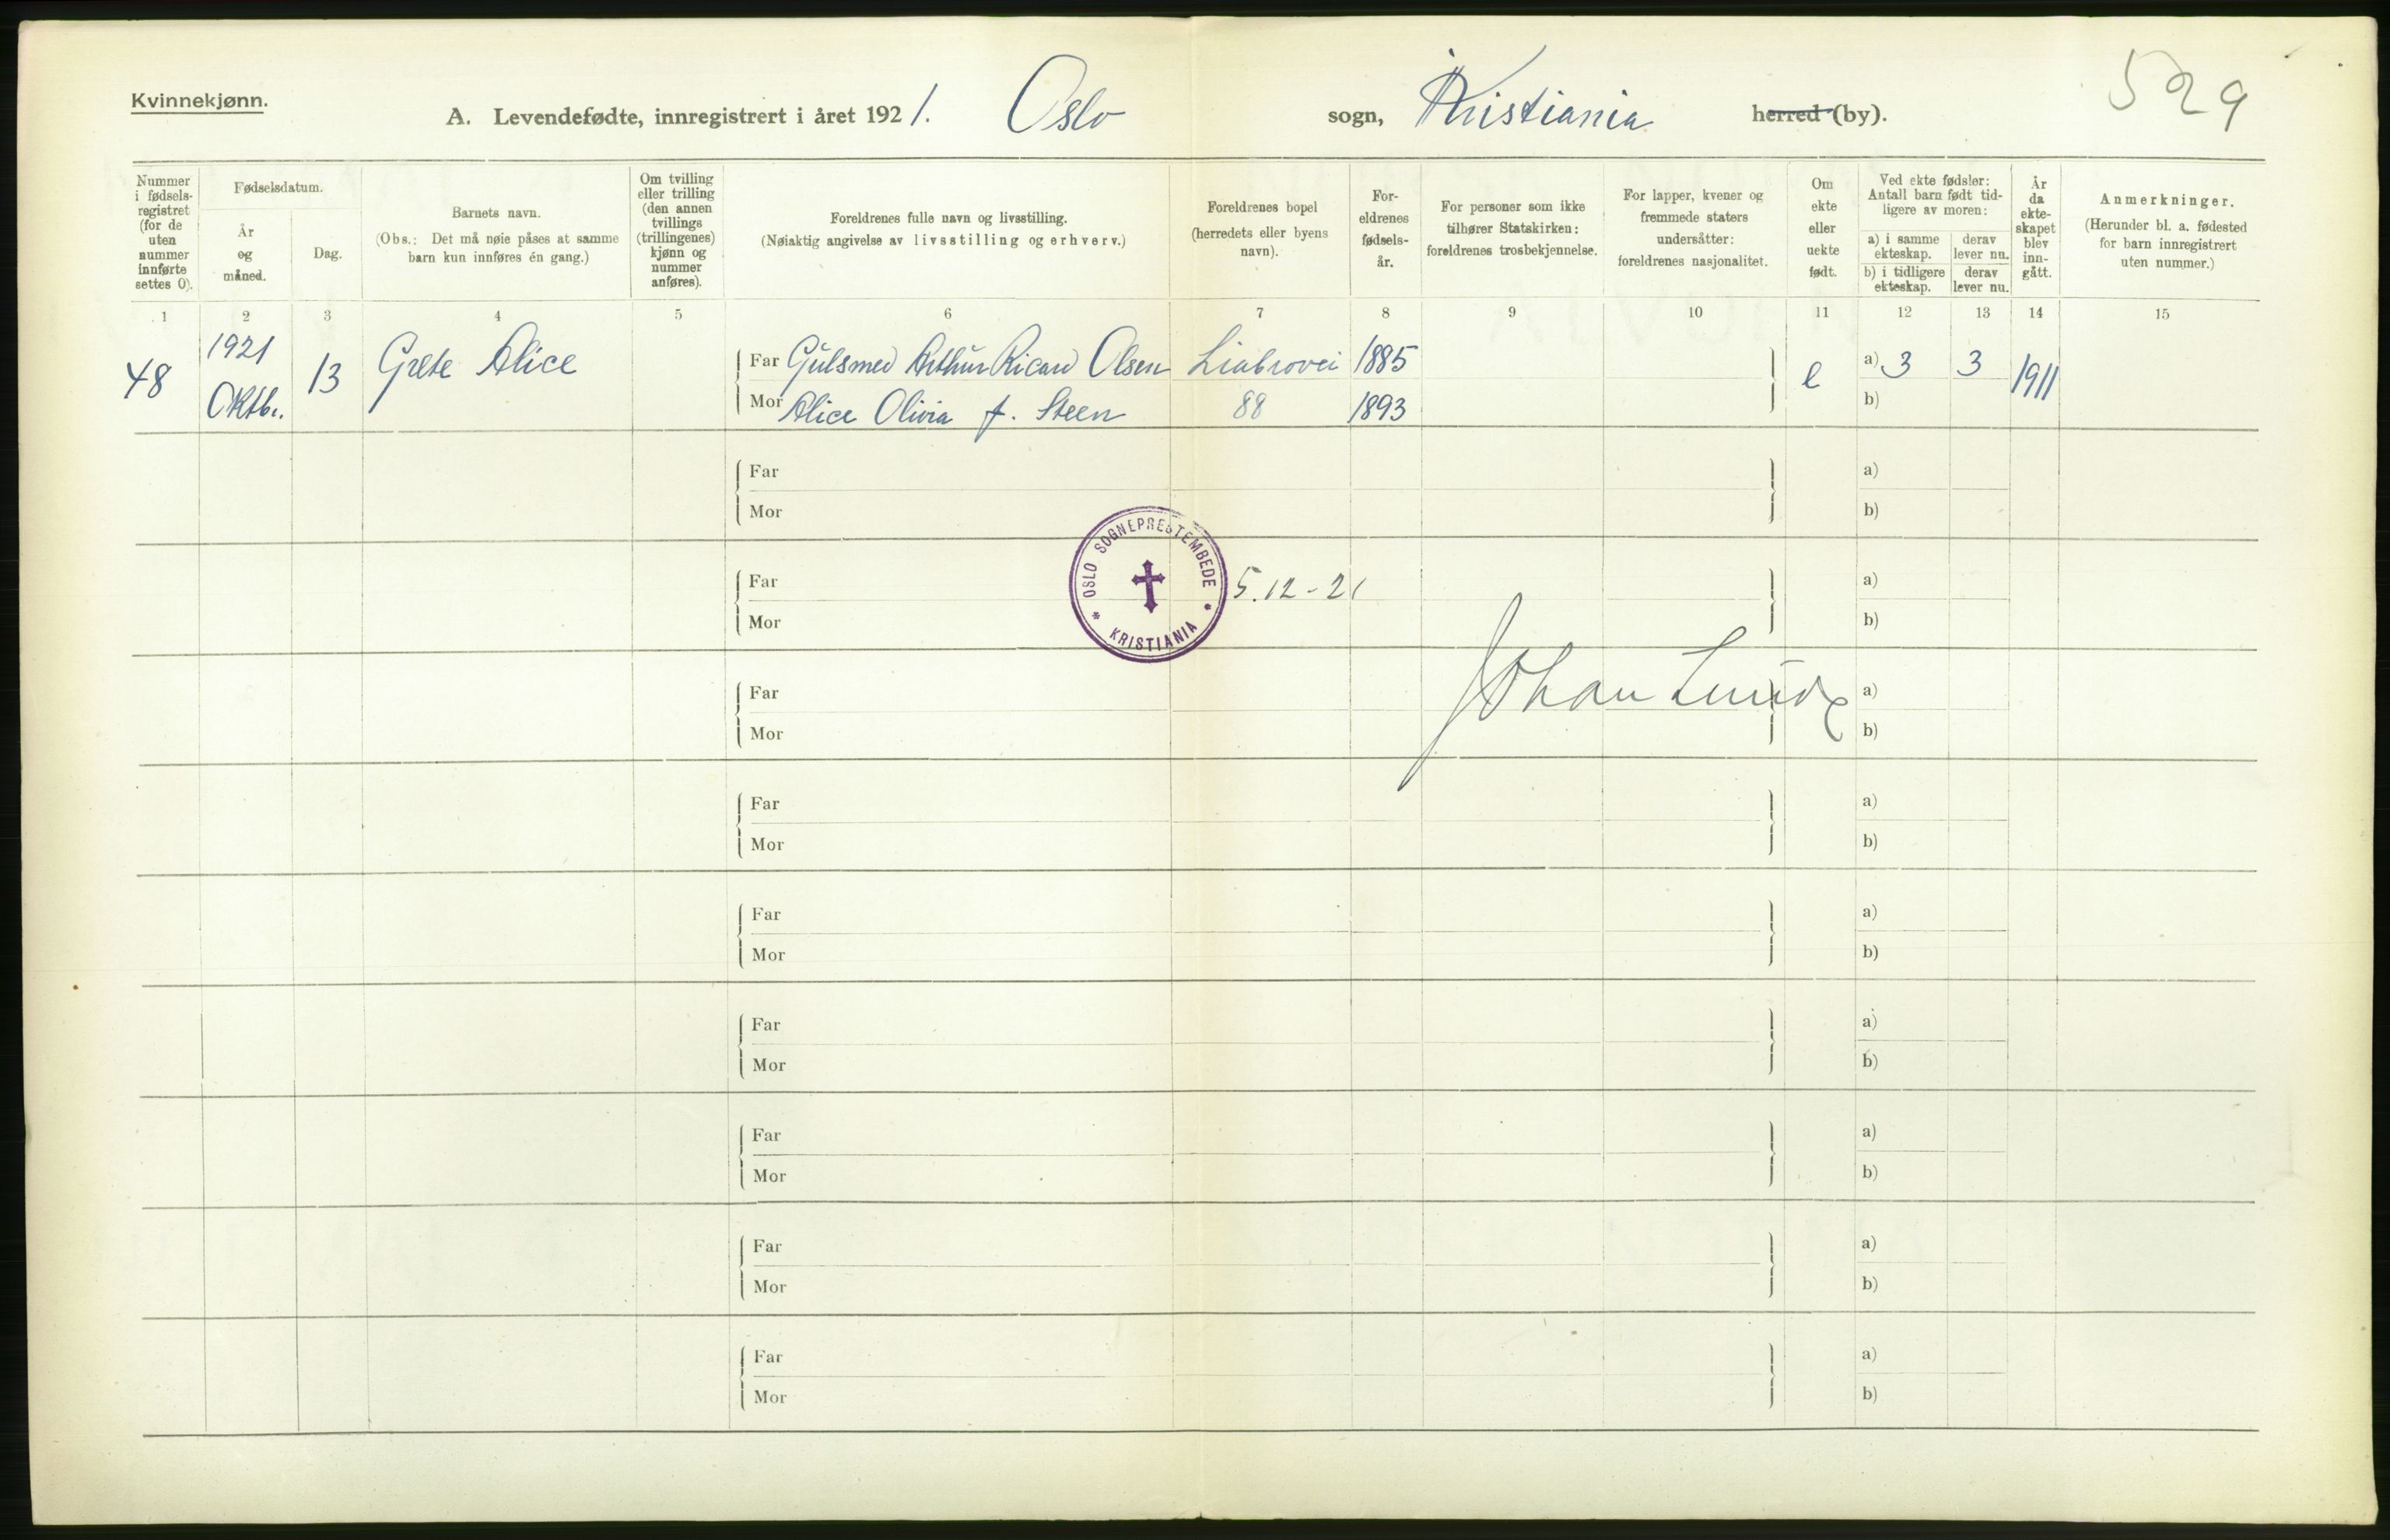 Kvinnekjønn.
A. Levendefødte, innregistrert i året 1921. Oslo sogn, Kristiania herred (by).
529
Nummer
i fødsels-
registret
(for de
uten
nummer
innførte
settes 0).
Fødselsdatum.
År
og
måned.
Dag.
Barnets navn.
(Obs.: Det må nøie påses at samme
barn kun innføres én gang.)
Om tvilling
eller trilling
(den annen
tvillings
(trillingenes)
kjønn og
nummer
anføres).
Foreldrenes fulle navn og livsstilling.
(Nøiaktig angivelse av livsstilling og erhverv.)
Foreldrenes bopel
(herredets eller byens
navn).
For-
eldrenes
fødsels-
år.
For personer som ikke
tilhører Statskirken:
foreldrenes trosbekjennelse.
For lapper, kvener og
fremmede staters
undersåtter:
foreldrenes nasjonalitet.
Om
ekte
eller
uekte
født.
Ved ekte fødsler:
Antall barn født tid-
ligere av moren:
a) i samme
ekteskap.
derav
lever nu.
b) i tidligere
ekteskap.
derav
lever nu.
År
da
ekte-
skapet
blev
inn-
gått.
Anmerkninger.
(Herunder bl. a. fødested
for barn innregistrert
uten nummer.)
1 2 3 4 5 6 7 8 9 10 11 12 13 14 15
48 1921 Oktbr. 13 Grete Alice
Far Gulsmed Arthur Ricard Olsen Liabrovei 1885 e a) 3 3 1911
Mor Alice Olivia f. Steen 88 1893 b)
Far a)
Mor b)
OSLO SOGNEPRESTEMBEDE
* KRISTIANIA *
Far 5.12-21 a)
Mor b)
Johan Lunde
Far a)
Mor b)
Far a)
Mor b)
Far a)
Mor b)
Far a)
Mor b)
Far a)
Mor b)
Far a)
Mor b)
Far a)
Mor b)